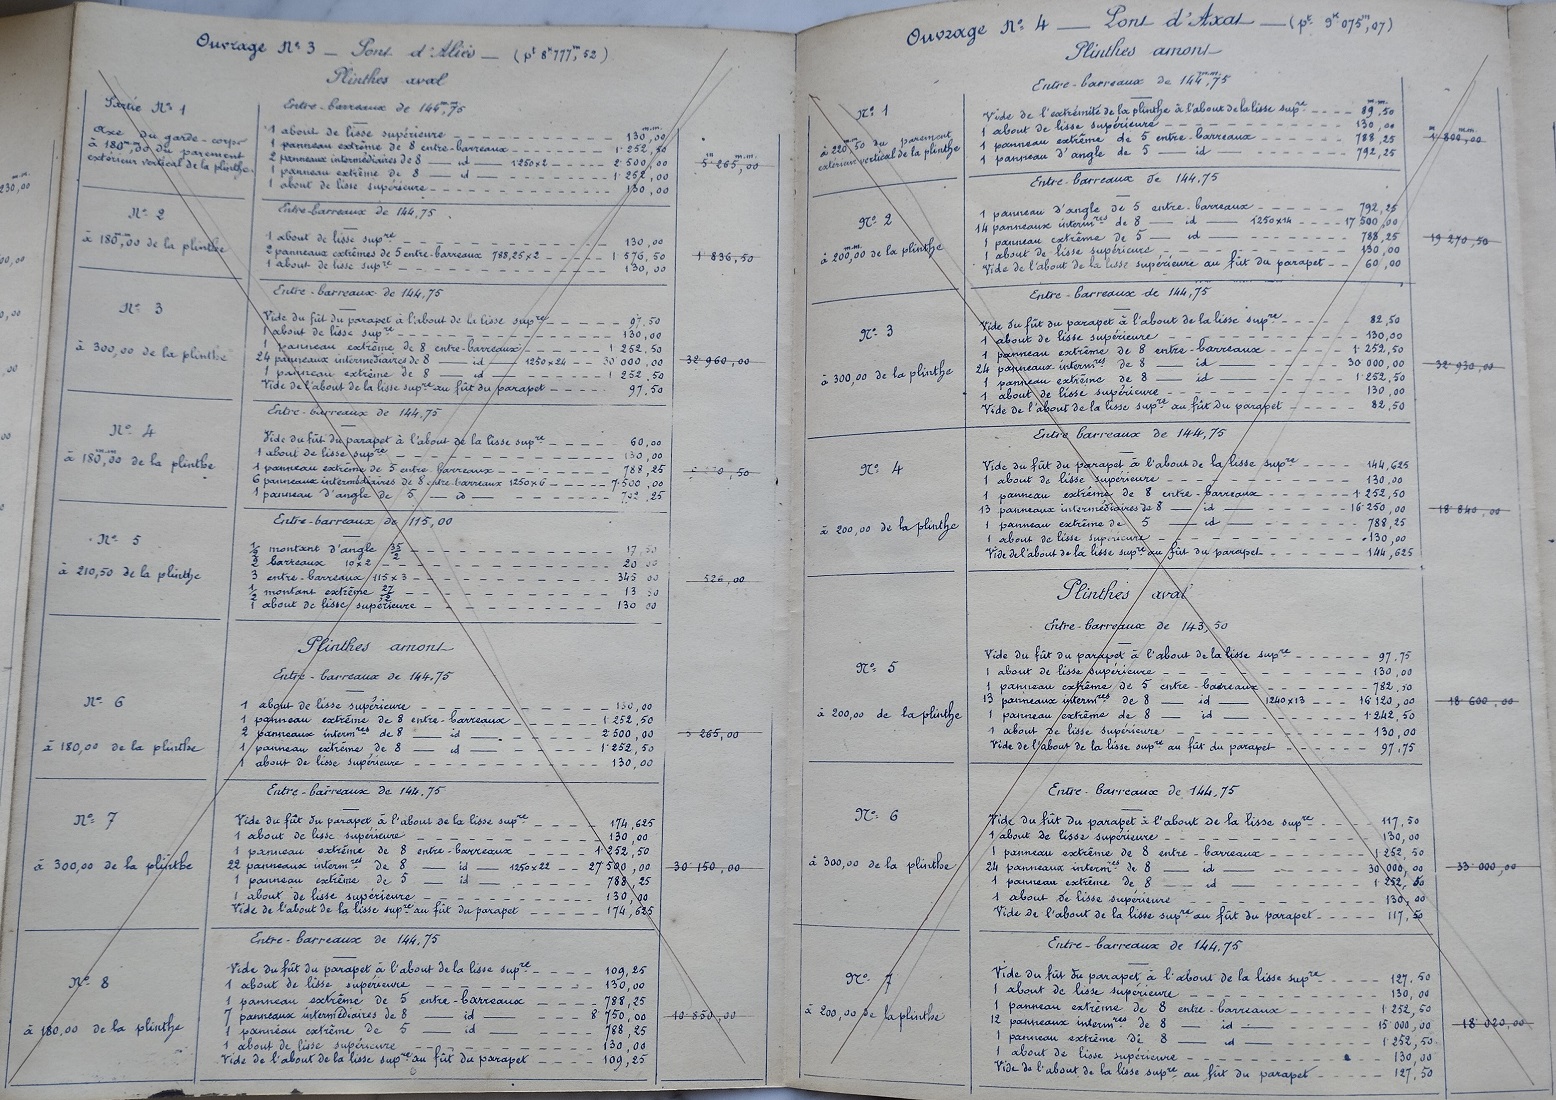 Ouvrage Nº 3 — Pont d'Aliès — (pt 8k777m,52)
Plinthes aval
Partie Nº 1
Axe du garde-corps
à 180mm,50 du parement
extérieur vertical de la plinthe.
Entre-barreaux de 144mm,75
1 about de lisse supérieure 130mm,00
1 panneau extrême de 8 entre-barreaux 1.252,50
2 panneaux intermédiaires de 8 — id — 1250x2 2 500,00
1 panneau extrême de 8 — id — 1.252,00
1 about de lisse supérieure 130,00
5m 265mm,00
Nº 2
à 180mm,00 de la plinthe
Entre-barreaux de 144,75
1 about de lisse supre 130,00
2 panneaux extrêmes de 5 entre-barreaux 788,25x2 1 576,50
1 about de lisse supre 130,00
1 836,50
Nº 3
à 300,00 de la plinthe
Entre-barreaux de 144,75
Vide du fût du parapet à l'about de la lisse supre 97,50
1 about de lisse supre 130,00
1 panneau extrême de 8 entre-barreaux 1 252,50
24 panneaux intermédiaires de 8 — id — 1250x24 30 000,00
1 panneau extrême de 8 — id — 1 252,50
Vide de l'about de la lisse supre au fût du parapet 97,50
32 960,00
Nº 4
à 180mm,00 de la plinthe
Entre-barreaux de 144,75
Vide du fût du parapet à l'about de la lisse supre 60,00
1 about de lisse supre 130,00
1 panneau extrême de 5 entre-barreaux 788,25
6 panneaux intermédiaires de 8 entre-barreaux 1250x6 7.500,00
1 panneau d'angle de 5 — id — 792,25
,50
Nº 5
à 210,50 de la plinthe
Entre-barreaux de 115,00
1/2 montant d'angle 35/2 17,50
2 barreaux 10x2 20,00
3 entre-barreaux 115x3 345,00
1/2 montant extrême 27/2 13,50
1 about de lisse supérieure 130,00
526,00
Plinthes amont
Nº 6
à 180,00 de la plinthe
Entre-barreaux de 144,75
1 about de lisse supérieure 130,00
1 panneau extrême de 8 entre-barreaux 1.252,50
2 panneaux intermres de 8 — id — 2 500,00
1 panneau extrême de 8 — id — 1.252,50
1 about de lisse supérieure 130,00
5 265,00
Nº 7
à 300,00 de la plinthe
Entre-barreaux de 144,75
Vide du fût du parapet à l'about de la lisse supre 174,625
1 about de lisse supérieure 130,00
1 panneau extrême de 8 entre-barreaux 1 252,50
22 panneaux intermres de 8 — id — 1250x22 27 500,00
1 panneau extrême de 5 — id — 788,25
1 about de lisse supérieure 130,00
Vide de l'about de la lisse supre au fût du parapet 174,625
30 150,00
Nº 8
à 180,00 de la plinthe
Entre-barreaux de 144,75
Vide du fût du parapet à l'about de la lisse supre 109,25
1 about de lisse supérieure 130,00
1 panneau extrême de 5 entre-barreaux 788,25
7 panneaux intermédiaires de 8 — id — 8 750,00
1 panneau extrême de 5 — id — 788,25
1 about de lisse supérieure 130,00
Vide de l'about de la lisse supre au fût du parapet 109,25
10 850,00
Ouvrage Nº 4 — Pont d'Axat — (pt 9k 075m,07)
Plinthes amont
Nº 1
à 220mm,50 du parement
extérieur vertical de la plinthe
Entre-barreaux de 144mm,75
Vide de l'extrémité de la plinthe à l'about de la lisse supre 89mm,50
1 about de lisse supérieure 130,00
1 panneau extrême de 5 entre-barreaux 788,25
1 panneau d'angle de 5 — id — 792,25
1m 800mm,00
Nº 2
à 200mm,00 de la plinthe
Entre-barreaux de 144,75
1 panneau d'angle de 5 entre-barreaux 792,25
14 panneaux intermres de 8 — id — 1250x14 17 500,00
1 panneau extrême de 5 — id 788,25
1 about de lisse supérieure 130,00
Vide de l'about de la lisse supérieure au fût du parapet 60,00
19 270,50
Nº 3
à 300,00 de la plinthe
Entre-barreaux de 144,75
Vide du fût du parapet à l'about de la lisse supre 82,50
1 about de lisse supérieure 130,00
1 panneau extrême de 8 entre-barreaux 1.252,50
24 panneaux intermres de 8 — id — 30 000,00
1 panneau extrême de 8 — id — 1.252,50
1 about de lisse supérieure 130,00
Vide de l'about de la lisse supre au fût du parapet 82,50
32 930,00
Nº 4
à 200,00 de la plinthe
Entre barreaux de 144,75
Vide du fût du parapet à l'about de la lisse supre 144,625
1 about de lisse supérieure 130,00
1 panneau extrême de 8 entre-barreaux 1.252,50
13 panneaux intermédiaires de 8 — id — 16 250,00
1 panneau extrême de 5 — id — 788,25
1 about de lisse supérieure 130,00
Vide de l'about de la lisse supre au fût du parapet 144,625
18 840,00
Plinthes aval
Nº 5
à 200,00 de la plinthe
Entre-barreaux de 143,50
Vide du fût du parapet à l'about de la lisse supre 97,75
1 about de lisse supérieure 130,00
1 panneau extrême de 5 entre-barreaux 782,50
13 panneaux intermres de 8 — id — 1240x13 16 120,00
1 panneau extrême de 8 — id — 1.242,50
1 about de lisse supérieure 130,00
Vide de l'about de la lisse supre au fût du parapet 97,75
18 600,00
Nº 6
à 300,00 de la plinthe
Entre-barreaux de 144,75
Vide du fût du parapet à l'about de la lisse supre 117,50
1 about de lisse supérieure 130,00
1 panneau extrême de 8 entre-barreaux 1 252,50
24 panneaux intermres de 8 — id — 30 000,00
1 panneau extrême de 8 — id — 1 252,50
1 about de lisse supérieure 130,00
Vide de l'about de la lisse supre au fût du parapet 117,50
33 000,00
Nº 7
à 200,00 de la plinthe
Entre-barreaux de 144,75
Vide du fût du parapet à l'about de la lisse supre 127,50
1 about de lisse supérieure 130,00
1 panneau extrême de 8 entre-barreaux 1 252,50
12 panneaux intermres de 8 — id — 15 000,00
1 panneau extrême de 8 — id — 1.252,50
1 about de lisse supérieure 130,00
Vide de l'about de la lisse supre au fût du parapet 127,50
18 020,00